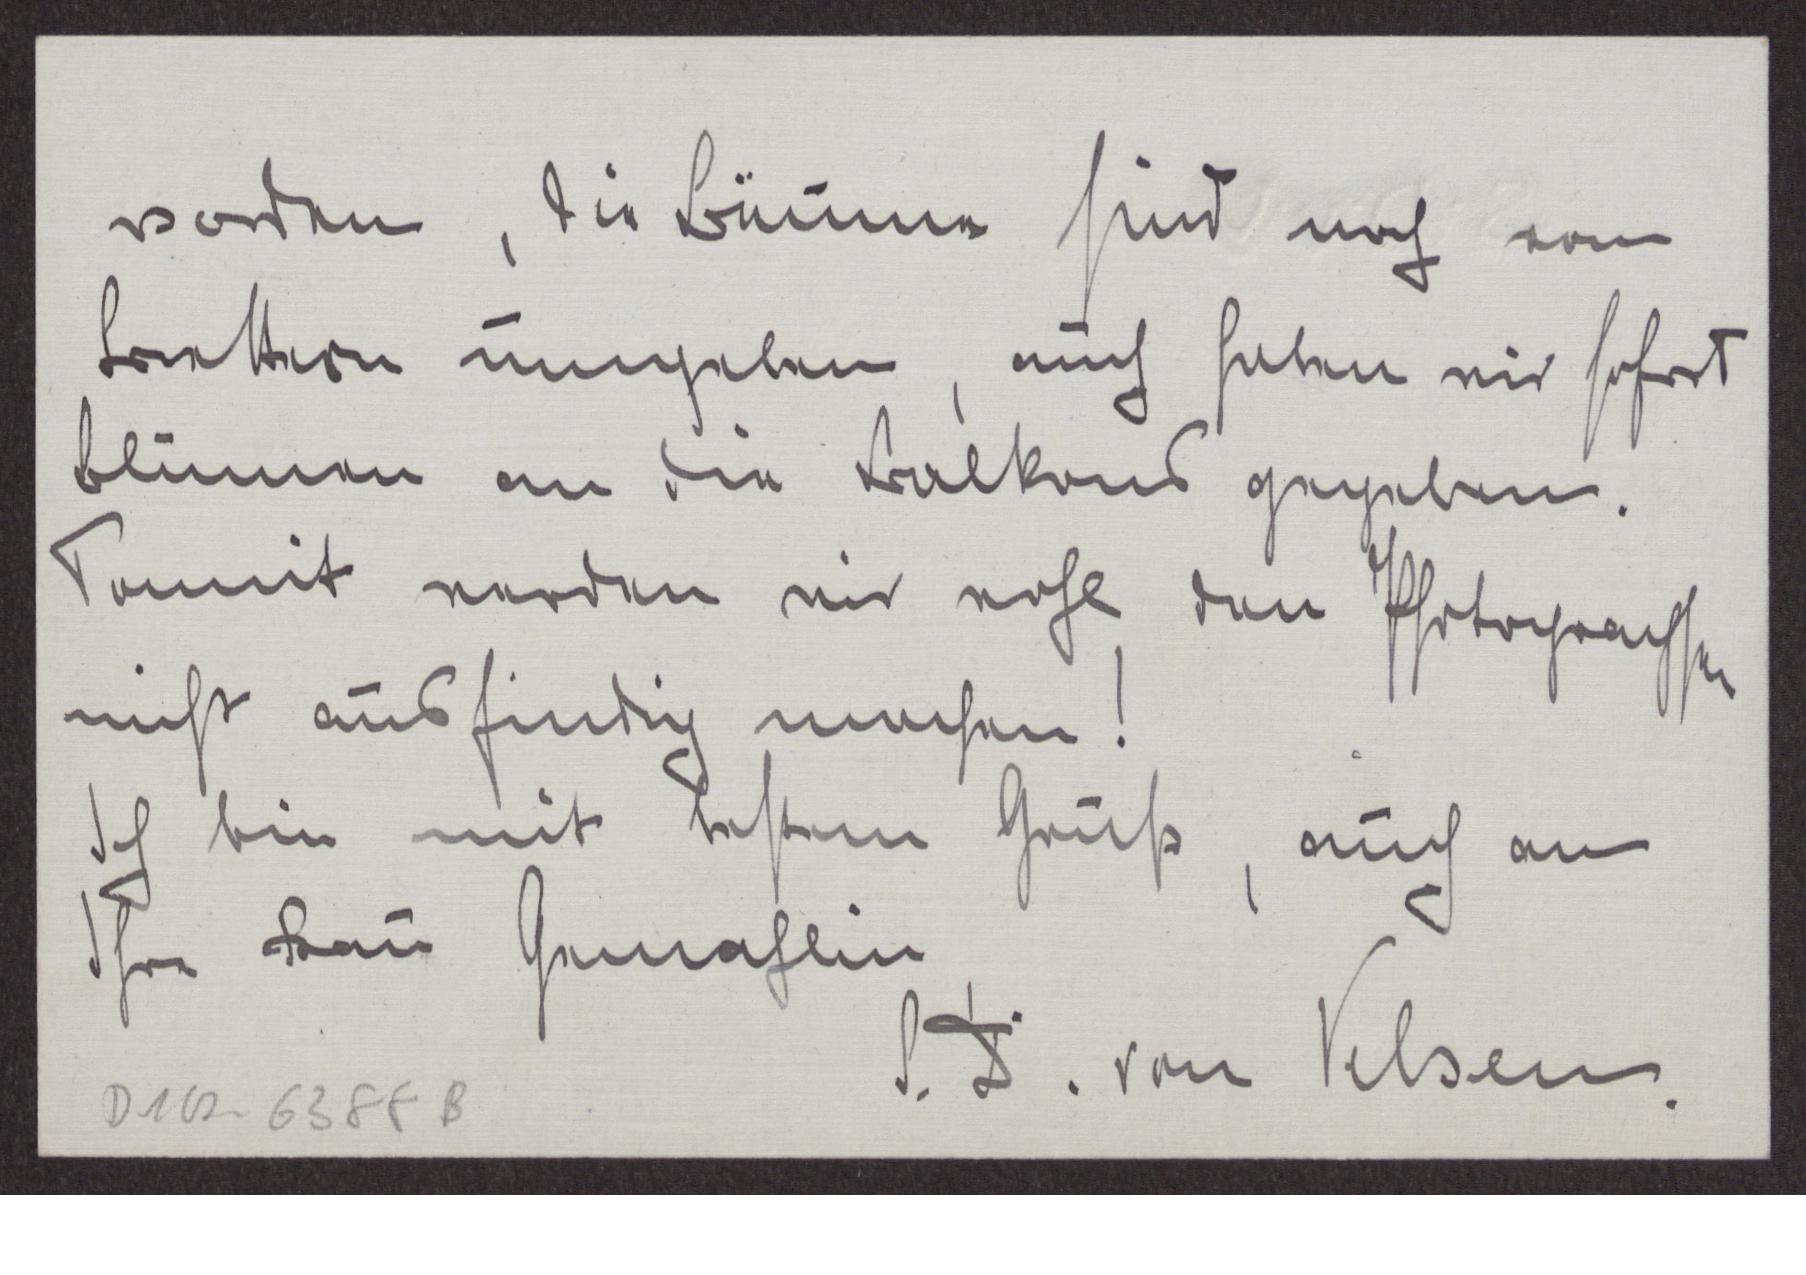 worden, die Bäume sind noch von
Brettern umgeben, auch haben wir sofort
Blumen an die Balkons gegeben.
Somit werden wir wohl den Photographen
nicht ausfindig machen!
Ich bin mit bestem Gruß, auch an
Ihre Frau Gemahlin
von Velsen.
D 102- 6388 B